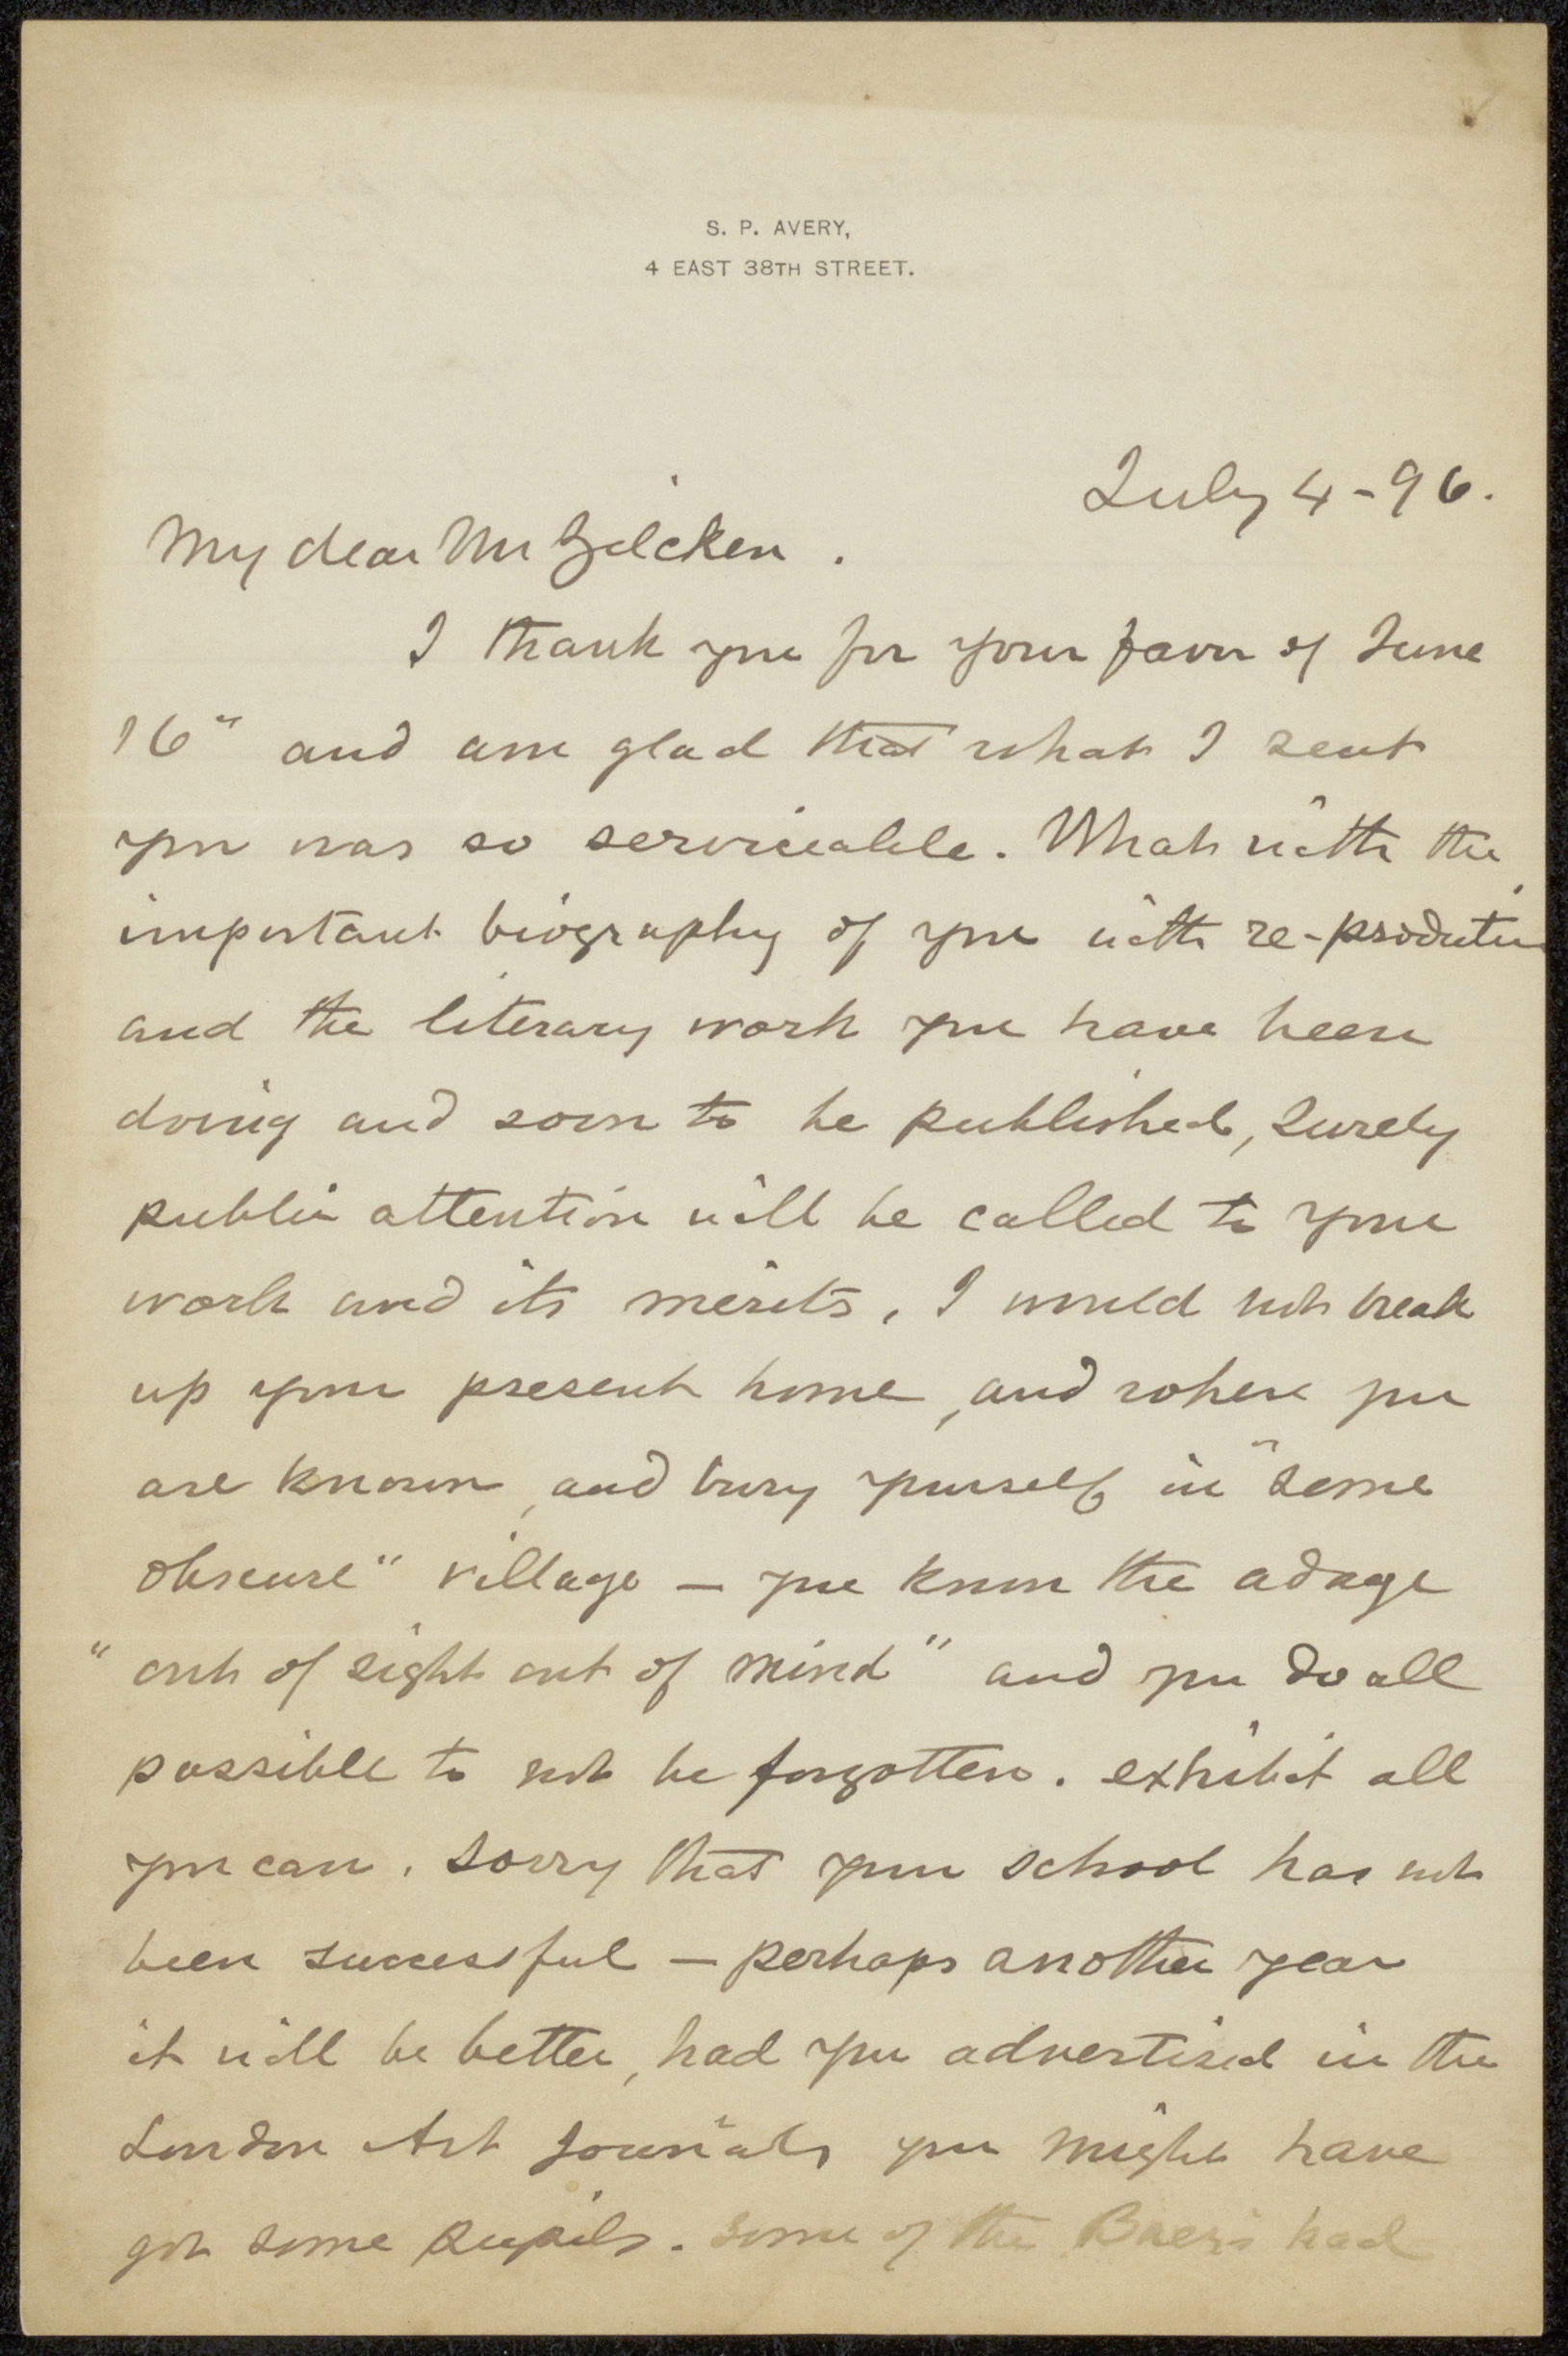 S. P. AVERY,
4 EAST 38TH STREET.
July 4-96.
My dear Mr Zilcken.
I thank you for your favor of June
16" and am glad that what I sent
you was so serviceable. What with the
important biography of you with re-production
and the literary work you have been
doing and soon to be published, surely
public attention will be called to your
work and its merits. I would not break
up your present home, and where you
are known, and bury yourself in "some
obscure" village — you know the adage
"out of sight out of mind" and you do all
possible to not be forgotten. exhibit all
you can. sorry that your school has not
been successful — perhaps another year
it will be better, had you advertised in the
London Art Journals you might have
got some pupils. some of the had